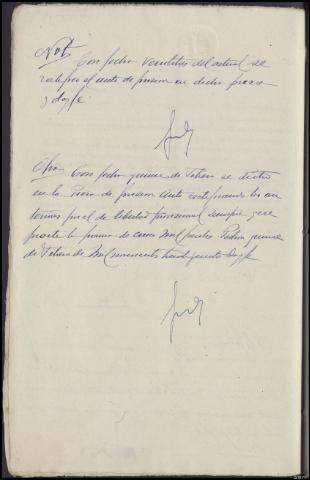 Nota Con fecha veintitres del actual se
ratifico el auto de prision en dicha pieza
y doy fe
Otra Con fecha quince de Febrero se dicto
en la Pieza de prision auto rectificando los an
teriores por el de libertad provisional siempre que
preste la fianza de cinco mil pesetas
de Febrero de Mil novecientos treinta y cuatro Doy fe